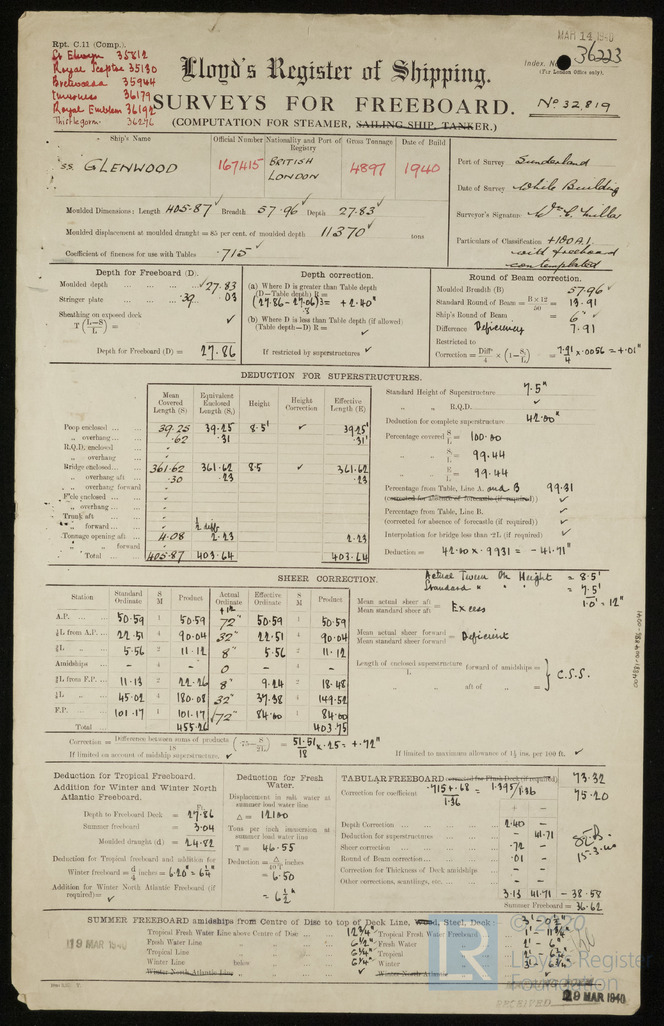 Rpt. C.11 (Comp.).
St Elwyn 35812
Royal Scepter 35130
35944
Inverness 36179
Royal Emblem 36192
Thistlegorm 36276
MAR 14 1940
Index. No. 36223
(For London Office only).
Lloyd's Register of Shipping.
SURVEYS FOR FREEBOARD.
No 32819
(COMPUTATION FOR STEAMER, SAILING SHIP, TANKER.)
Ship's Name Official Number Nationality and Port of Registry Gross Tonnage Date of Build
s.s. GLENWOOD 167415 BRITISH LONDON 4897 1940
Port of Survey Sunderland
Date of Survey While Building
Surveyor's Signature
Particulars of Classification +100A1 with freeboard contemplated
Moulded Dimensions: Length 405.87 Breadth 57.96 Depth 27.83
Moulded displacement at moulded draught = 85 per cent. of moulded depth 11370 tons
Coefficient of fineness for use with Tables .715
Depth for Freeboard (D).
Moulded depth 27.83
Stringer plate .39 .03
Sheathing on exposed deck
T (L-S/L) =
Depth for Freeboard (D) = 27.86
Depth correction.
(a) Where D is greater than Table depth
(D-Table depth) R =
(27.86 - 27.06) 3 = + 2.40"
(b) Where D is less than Table depth (if allowed)
(Table depth-D) R =
If restricted by superstructures
Round of Beam correction.
Moulded Breadth (B) 57.96
Standard Round of Beam = B×12/50 = 13.91
Ship's Round of Beam = 6"
Difference Deficiency 7.91
Restricted to
Correction = Diff/4 × (1-S/L) = 7.91/4 × .0056 = +.01"
DEDUCTION FOR SUPERSTRUCTURES.
Mean Covered Length (S) Equivalent Enclosed Length (S₁) Height Height Correction Effective Length (E)
Poop enclosed 39.25 39.25 8.5' 39.25'
" overhang .62 .31 .31'
R.Q.D. enclosed
" overhang
Bridge enclosed 361.62 361.62 8.5 361.62
" overhang aft .30 .23 .23
" overhang forward
F'cle enclosed
" overhang
Trunk aft
" forward ½ diff
Tonnage opening aft 4.08 2.23 2.23
" " forward
Total 405.87 403.64 403.64
Standard Height of Superstructure 7.5"
" " R.Q.D.
Deduction for complete superstructure 42.00"
Percentage covered S/L = 100.00
" " S₁/L = 99.44
" " E/L = 99.44
Percentage from Table, Line A. and B 99.31
(corrected for absence of forecastle (if required))
Percentage from Table, Line B.
(corrected for absence of forecastle (if required))
Interpolation for bridge less than ·2L (if required)
Deduction = 42.00 × .9931 = - 41.71"
SHEER CORRECTION.
Actual Tween Dk Height = 8.5'
Standard " " " = 7.5'
1.0' = 12"
Station Standard Ordinate S M Product Actual Ordinate Effective Ordinate S M Product
+12
A.P. 50.59 1 50.59 72" 50.59 1 50.59
⅙L from A.P. 22.51 4 90.04 32" 22.51 4 90.04
⅓L " 5.56 2 11.12 8" 5.56 2 11.12
Amidships - 4 0 - 4
⅓L from F.P. 11.13 2 22.26 8" 9.24 2 18.48
⅙L " 45.02 4 180.08 32" 37.38 4 149.52
F.P. 101.17 1 101.17 72" 84.00 1 84.00
Total 455.26 403.75
Mean actual sheer aft / Mean standard sheer aft = Excess
Mean actual sheer forward / Mean standard sheer forward = Deficient
Length of enclosed superstructure / L forward of amidships =
" " aft of " =
C.S.S.
Correction = Difference between sums of products / 18 (.75- S/2L) = 51.51/18 × .25 = + .72"
If limited on account of midship superstructure.
If limited to maximum allowance of 1½ ins. per 100 ft.
Deduction for Tropical Freeboard.
Addition for Winter and Winter North Atlantic Freeboard.
Ft.
Depth to Freeboard Deck = 27.86
Summer freeboard = 3.04
Moulded draught (d) = 24.82
Deduction for Tropical freeboard and addition for Winter freeboard = d/4 inches = 6.20" = 6¼"
Addition for Winter North Atlantic Freeboard (if required) =
Deduction for Fresh Water.
Displacement in salt water at summer load water line
△ = 12100
Tons per inch immersion at summer load water line
T = 46.55
Deduction = △/40 T inches
= 6.50
= 6½"
TABULAR FREEBOARD (corrected for Flush Deck (if required)) 73.32
Correction for coefficient .715 + .68 / 1.36 = 1.395/1.36 75.20
+ -
Depth Correction 2.40 -
Deduction for superstructures - 41.71
Sheer correction .72 -
Round of Beam correction .01 -
Correction for Thickness of Deck amidships - -
Other corrections, scantlings, etc. - -
3.13 41.71 - 38.58
Summer Freeboard = 36.62
15-3-40
SUMMER FREEBOARD amidships from Centre of Disc to top of Deck Line, Wood, Steel, Deck 3' 0½"
Tropical Fresh Water Line above Centre of Disc 12¾"
Fresh Water Line " " 6½"
Tropical Line " " 6¼"
Winter Line below " " 6¼"
Winter North Atlantic Line " "
Tropical Fresh Water Freeboard 1' 11¾"
Fresh Water " 2' 6"
Tropical " 2' 6¼"
Winter " 3' 6¾"
Winter North Atlantic "
19 MAR 1940
29 MAR 1940
RECEIVED
© 2020
LR
Lloyd's Register
Foundation